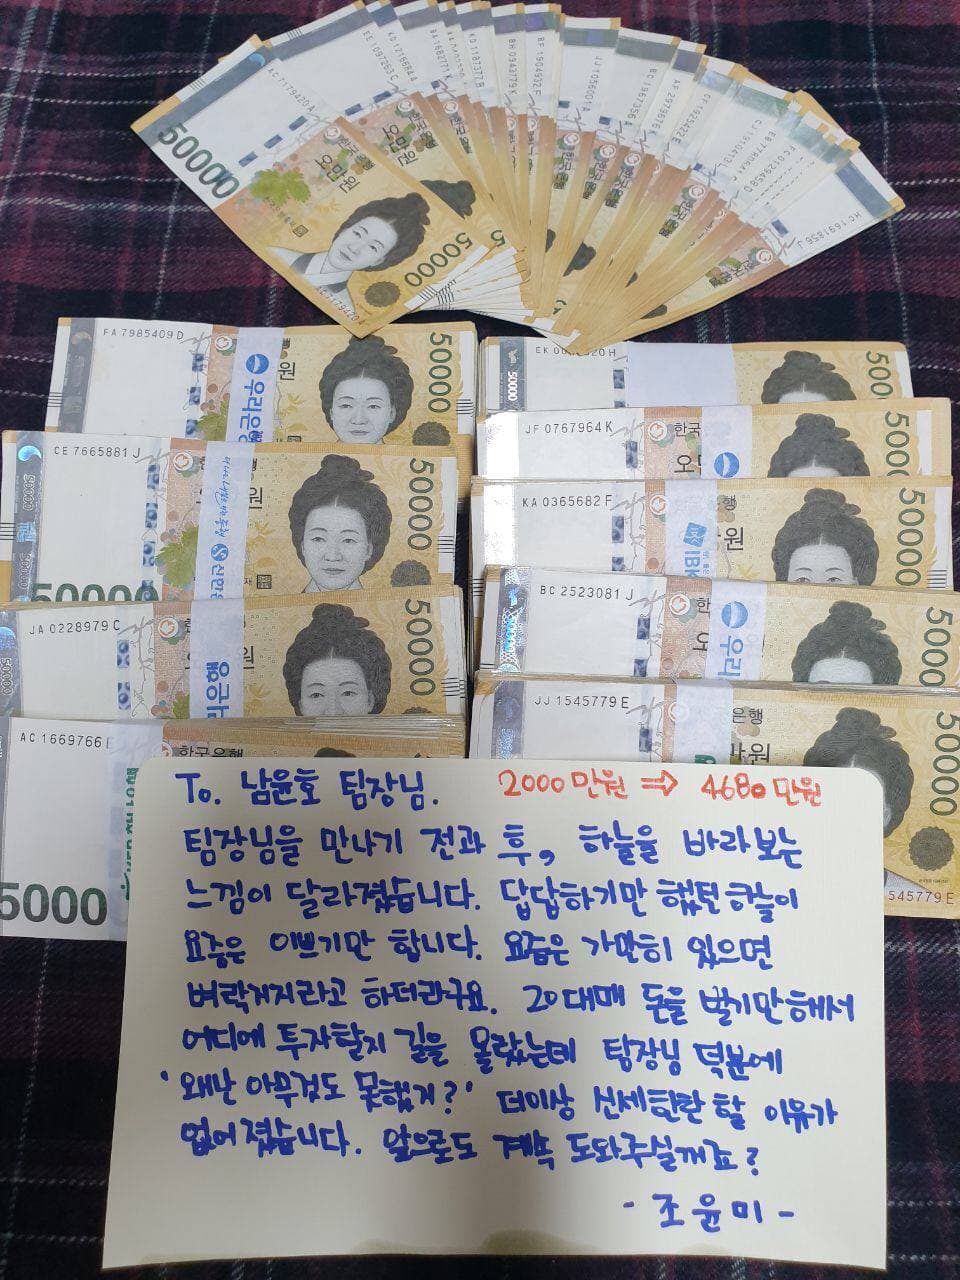 AC 7179420 A
50000
한국은행
오만원
50000
HC 1691856 J
FA 7985409 D
우리은행
원
50000
CE 7665881 J
50000
50000
JA 0228979 C
50000
AC 1669766
한국은행
5000
EK
50000
JF 0767964 K
한국
KA 0365682 F
IBK
원
BC 2523081 J
한
우리
JJ 1545779 E
은행
50000
545779 E
To. 남윤호 팀장님. 2000만원 ⇒ 4680만원
팀장님을 만나기 전과 후, 하늘을 바라보는
느낌이 달라졌습니다. 답답하기만 했던 하늘이
요즘은 이쁘기만 합니다. 요즘은 가만히 있으면
벼락거지라고 하더라구요. 20대때 돈을 벌기만해서
어디에 투자할지 길을 몰랐는데 팀장님 덕분에
'왜난 아무것도 못했지?' 더이상 신세한탄 할 이유가
없어졌습니다. 앞으로도 계속 도와주실꺼죠?
- 조윤미 -